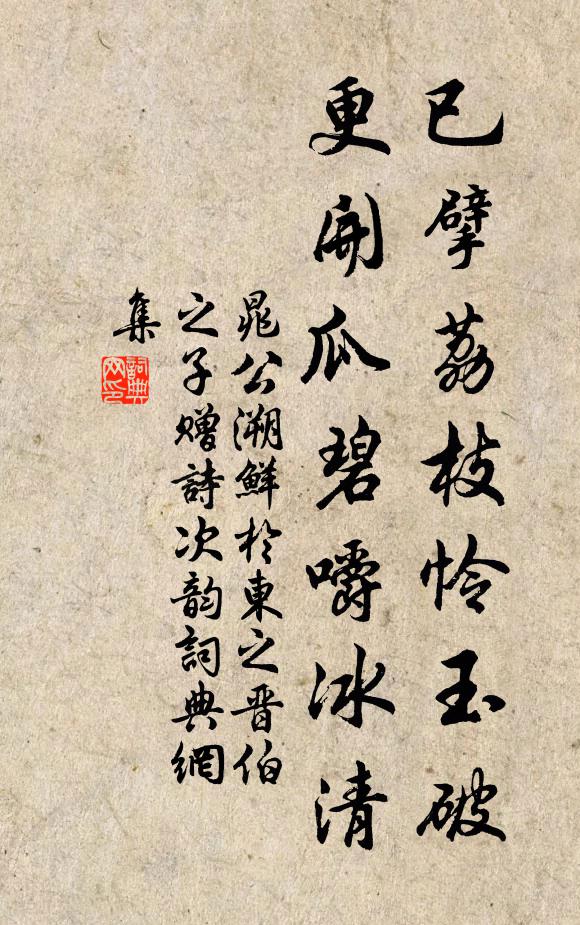 已擘荔枝怜玉破
更開瓜碧嚼冰清
晁公溯鮮於東之晋伯
之子赠詩次韵詞典網
集
詞典
网印